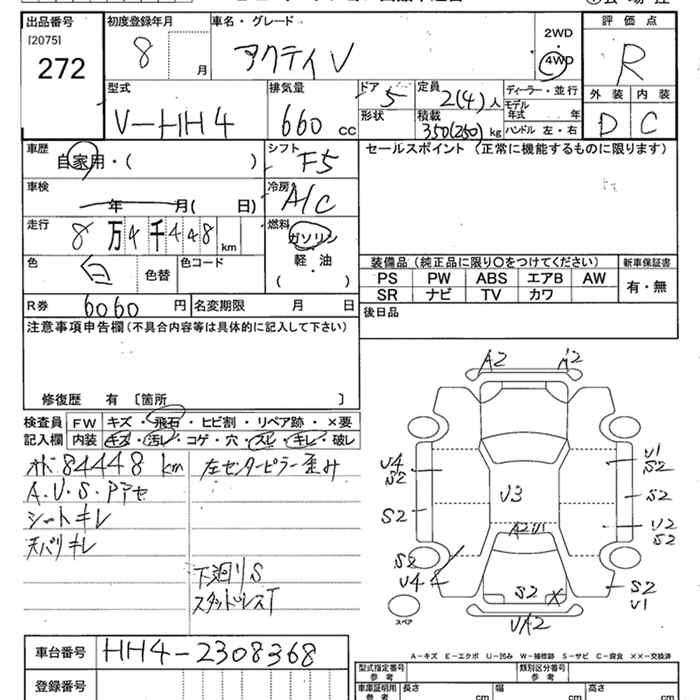 出品番号
[2075]
272
初度登録年月
8
月
車名・グレード
アクティ V
2WD
4WD
評価点
R
外装
内装
D
C
型式
V-HH4
排気量
660 cc
ドア
5
形状
定員
2(4)人
積載
350(250) kg
ディーラー・並行
モデル
年式 年
ハンドル 左・右
車歴
自家用・( )
シフト
F5
車検
年 月( 日)
冷房
A/C
走行
8 万 4 千 4 4 8 km
燃料
ガソリン
軽・油
( )
色
白
色替
色コード
R券
6060 円
名変期限 月 日
セールスポイント (正常に機能するものに限ります)
装備品 (純正品に限り○をつけてください)
新車保証書
PS PW ABS エアB AW
SR ナビ TV カワ
有・無
後日品
注意事項申告欄(不具合内容等は具体的に記入して下さい)
修復歴 有 〔箇所 〕
検査員
記入欄
FW キズ・飛石・ヒビ割・リペア跡・×要
内装 キズ・汚レ・コゲ・穴・スレ・キレ・破レ
84448 km
左センターピラー歪み
シートキレ
天バリキレ
下廻りS
スタッドレスT
A2
A2
V4
S2
S2
S2
V4
V3
S2
V1
S2
S2
V2
S2
S2
V1
スペア
A-キズ E-エクボ U-凹み W-補修跡 S-サビ C-腐食 XX-交換済
車台番号
HH4-2308368
登録番号
型式指定番号
参考
類別区分番号
参考
車庫証明用
参考
長さ cm
幅 cm
高さ cm